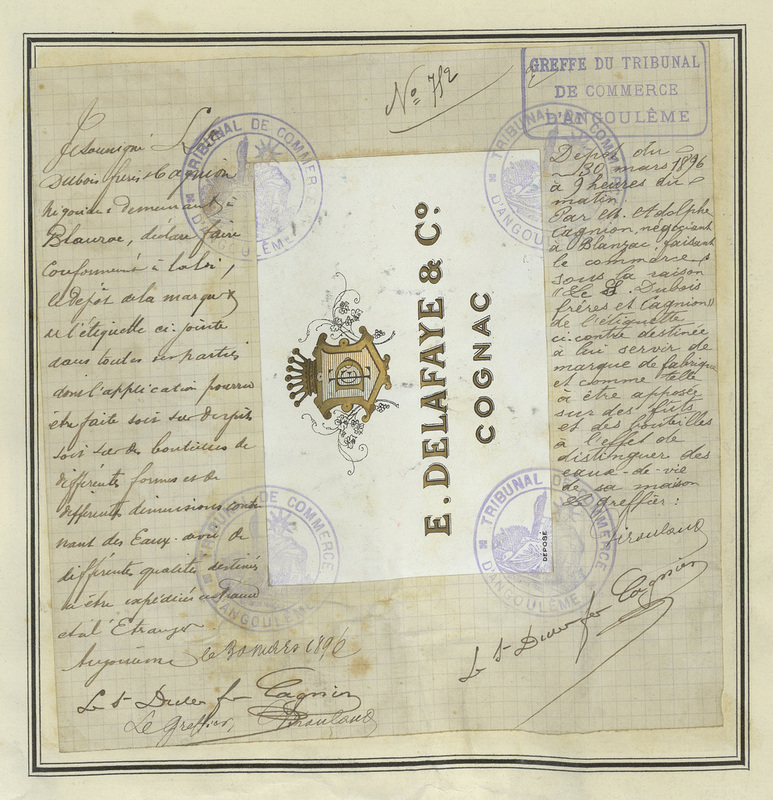 No 782
GREFFE DU TRIBUNAL
DE COMMERCE
D'ANGOULÊME
Je soussigné L
Dubois frères & Cagnion
négociant demeurant à
Blanzac, déclare faire
Conformément à la loi,
le dépôt de la marque &
de l'étiquette ci-jointe
dans toutes ses parties
dont l'application pourra
être faite soit sur des fûts
soit sur des bouteilles de
différentes formes et de
différentes dimensions conte
nant des Eaux-de-vie de
différentes qualités destinées
à être expédiées en France
et à l'Etranger
Angoulême le 30 mars 1896
Le St Dubois fr Cagnion
Le Greffier,
E. DELAFAYE & Co.
COGNAC
DÉPOSÉ
Dépôt du
30 mars 1896
à 9 heures du
matin
Par M. Adolphe
Cagnion, négociant
à Blanzac, faisant
le commerce
sous la raison
"Le S. Dubois
frères et Cagnion"
de l'étiquette
ci-contre destinée
à lui servir de
marque de fabrique
et comme telle
à être apposée
sur des fûts
et des bouteilles
à l'effet de
distinguer des
eaux-de-vie
de sa maison
Le greffier:
Le St Dubois fr Cagnion
TRIBUNAL DE COMMERCE
D'ANGOULÊME
TRIBUNAL DE COMMERCE
D'ANGOULÊME
TRIBUNAL DE COMMERCE
D'ANGOULÊME
TRIBUNAL DE COMMERCE
D'ANGOULÊME